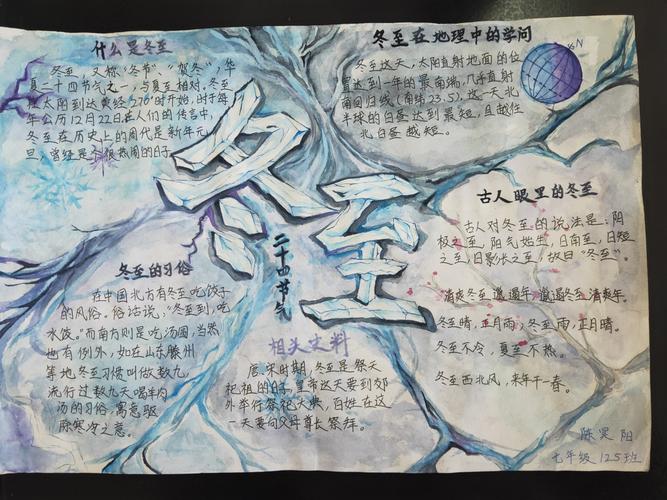 什么是冬至
冬至，又称“冬节”、“贺冬”，华
夏二十四节气之一，与夏至相对。冬至
在太阳到达黄经270°时开始，时于每
年公历12月22日在人们的传言中，
冬至在历史上的周代是新年元
旦，曾经是个很热闹的日子。
冬至在地理中的学问
冬至这天，太阳直射地面的位
置达到一年的最南端，几乎直射
南回归线（南纬23.5），这一天北
半球的白昼达到最短，且越往
北白昼越短。
N
冬至
二十四节气
古人眼里的冬至
古人对冬至的说法是：阴
极之至，阳气始生，日南至，日短
之至，日影长之至，故曰“冬至”。
清爽冬至邋遢年，邋遢冬至清爽年。
冬至晴，正月雨；冬至雨，正月晴。
冬至不冷，夏至不热。
冬至西北风，来年干一春。
冬至的习俗
在中国北方有冬至吃饺子
的风俗。俗话说：“冬至到，吃
水饺。”而南方则是吃汤圆，当然
也有例外，如在山东滕州
等地冬至习惯叫做数九，
流行过数九天喝羊肉
汤的习俗，寓意驱
除寒冷之意。
相关史料
唐、宋时期，冬至是祭天
祀祖的日子，皇帝这天要到郊
外举行祭祀大典，百姓在这
一天要向父母尊长祭拜。
陈昊阳
七年级 125班